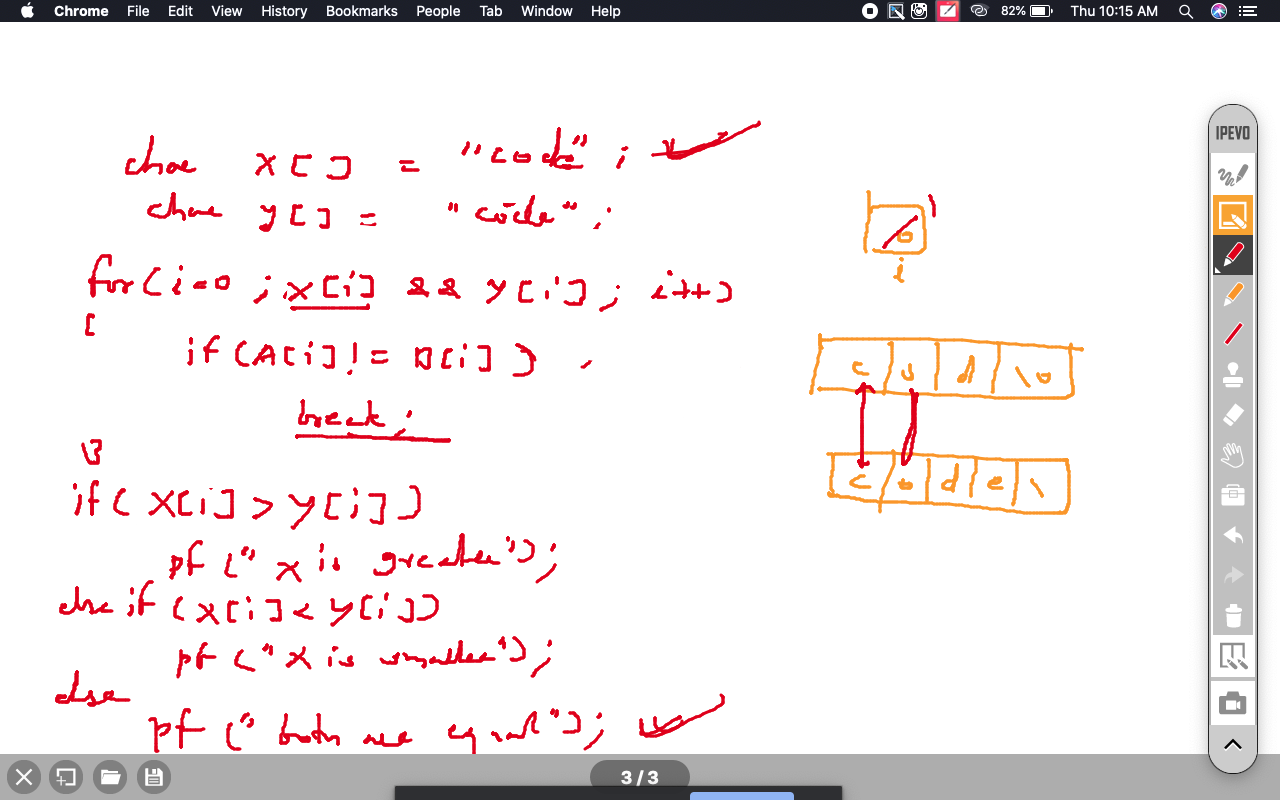 Chrome File Edit View History Bookmarks People Tab Window Help 82% Thu 10:15 AM
char x[] = "code" ;
char y[] = "code" ;
for(i=0 ; x[i] && y[i] ; i++)
{
if(A[i] != B[i])
break;
}
if( x[i] > y[i])
pf (" x is greater");
else if (x[i] < y[i])
pf (" x is smaller");
else
pf (" both are equal");
0 1
i
c o d \o
c o d e \
IPEVO
3 / 3